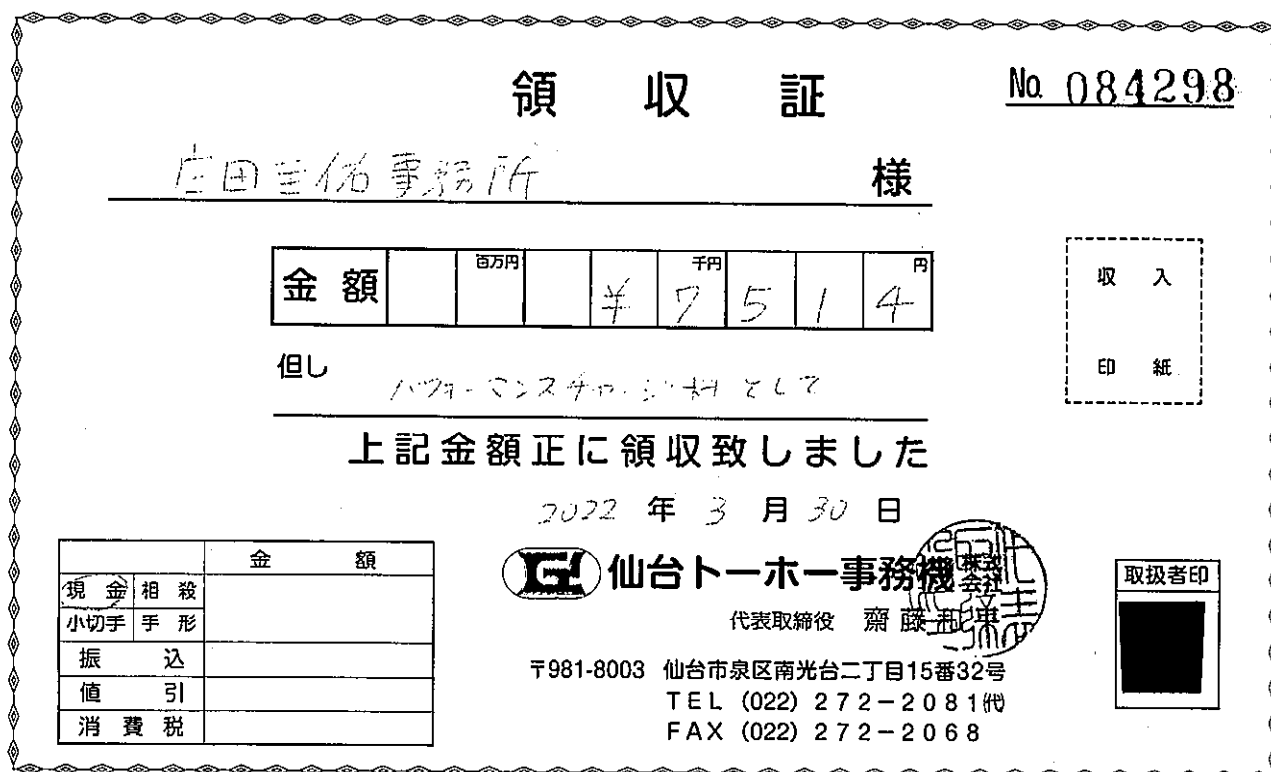 領収証
No. 084298
庄田圭佑事務所 様
金額 百万円 千円 円
¥7514
但し パフォーマンスチャージ料として
上記金額正に領収致しました
2022年3月30日
金額
現金 相殺
小切手 手形
振込
値引
消費税
仙台トーホー事務機株式会社
代表取締役 齋藤
〒981-8003 仙台市泉区南光台二丁目15番32号
TEL (022) 272-2081㈹
FAX (022) 272-2068
収入
印紙
取扱者印